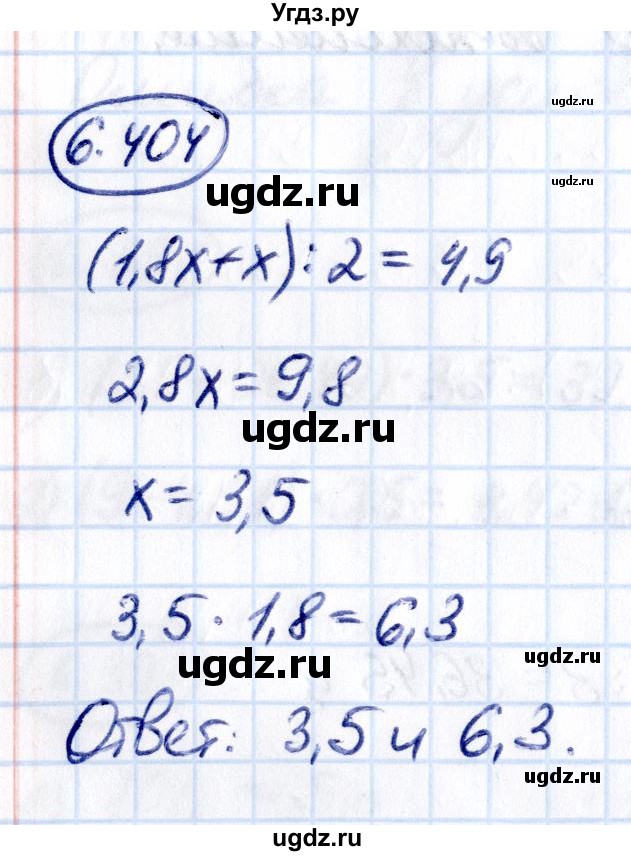 Угдз.ру
ugdz.ru
6.404
ugdz.ru
(1,8x+x):2=4,9
2,8x=9,8
ugdz.ru
x=3,5
3,5·1,8=6,3
ugdz.ru
ugdz.ru
Ответ: 3,5 и 6,3.
ugdz.ru
ugdz.ru